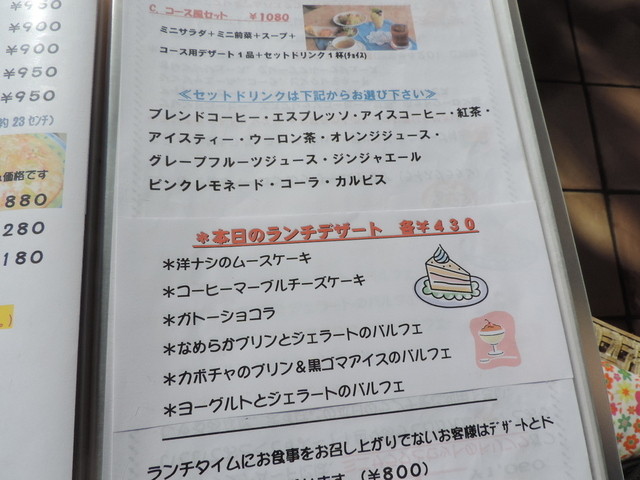 ￥950
￥900
￥950
￥950
約23センチ)
価格です
880
280
180
C. コース風セット ￥1080
ミニサラダ＋ミニ前菜＋スープ＋
コース用デザート1品＋セットドリンク1杯(ﾁｮｲｽ)
≪セットドリンクは下記からお選び下さい≫
ブレンドコーヒー・エスプレッソ・アイスコーヒー・紅茶・
アイスティー・ウーロン茶・オレンジジュース・
グレープフルーツジュース・ジンジャエール
ピンクレモネード・コーラ・カルピス
＊本日のランチデザート 各￥430
＊洋ナシのムースケーキ
＊コーヒーマーブルチーズケーキ
＊ガトーショコラ
＊なめらかプリンとジェラートのパルフェ
＊カボチャのプリン＆黒ゴマアイスのパルフェ
＊ヨーグルトとジェラートのパルフェ
ランチタイムにお食事をお召し上がりでないお客様はﾃﾞｻﾞｰﾄとド
(￥800)